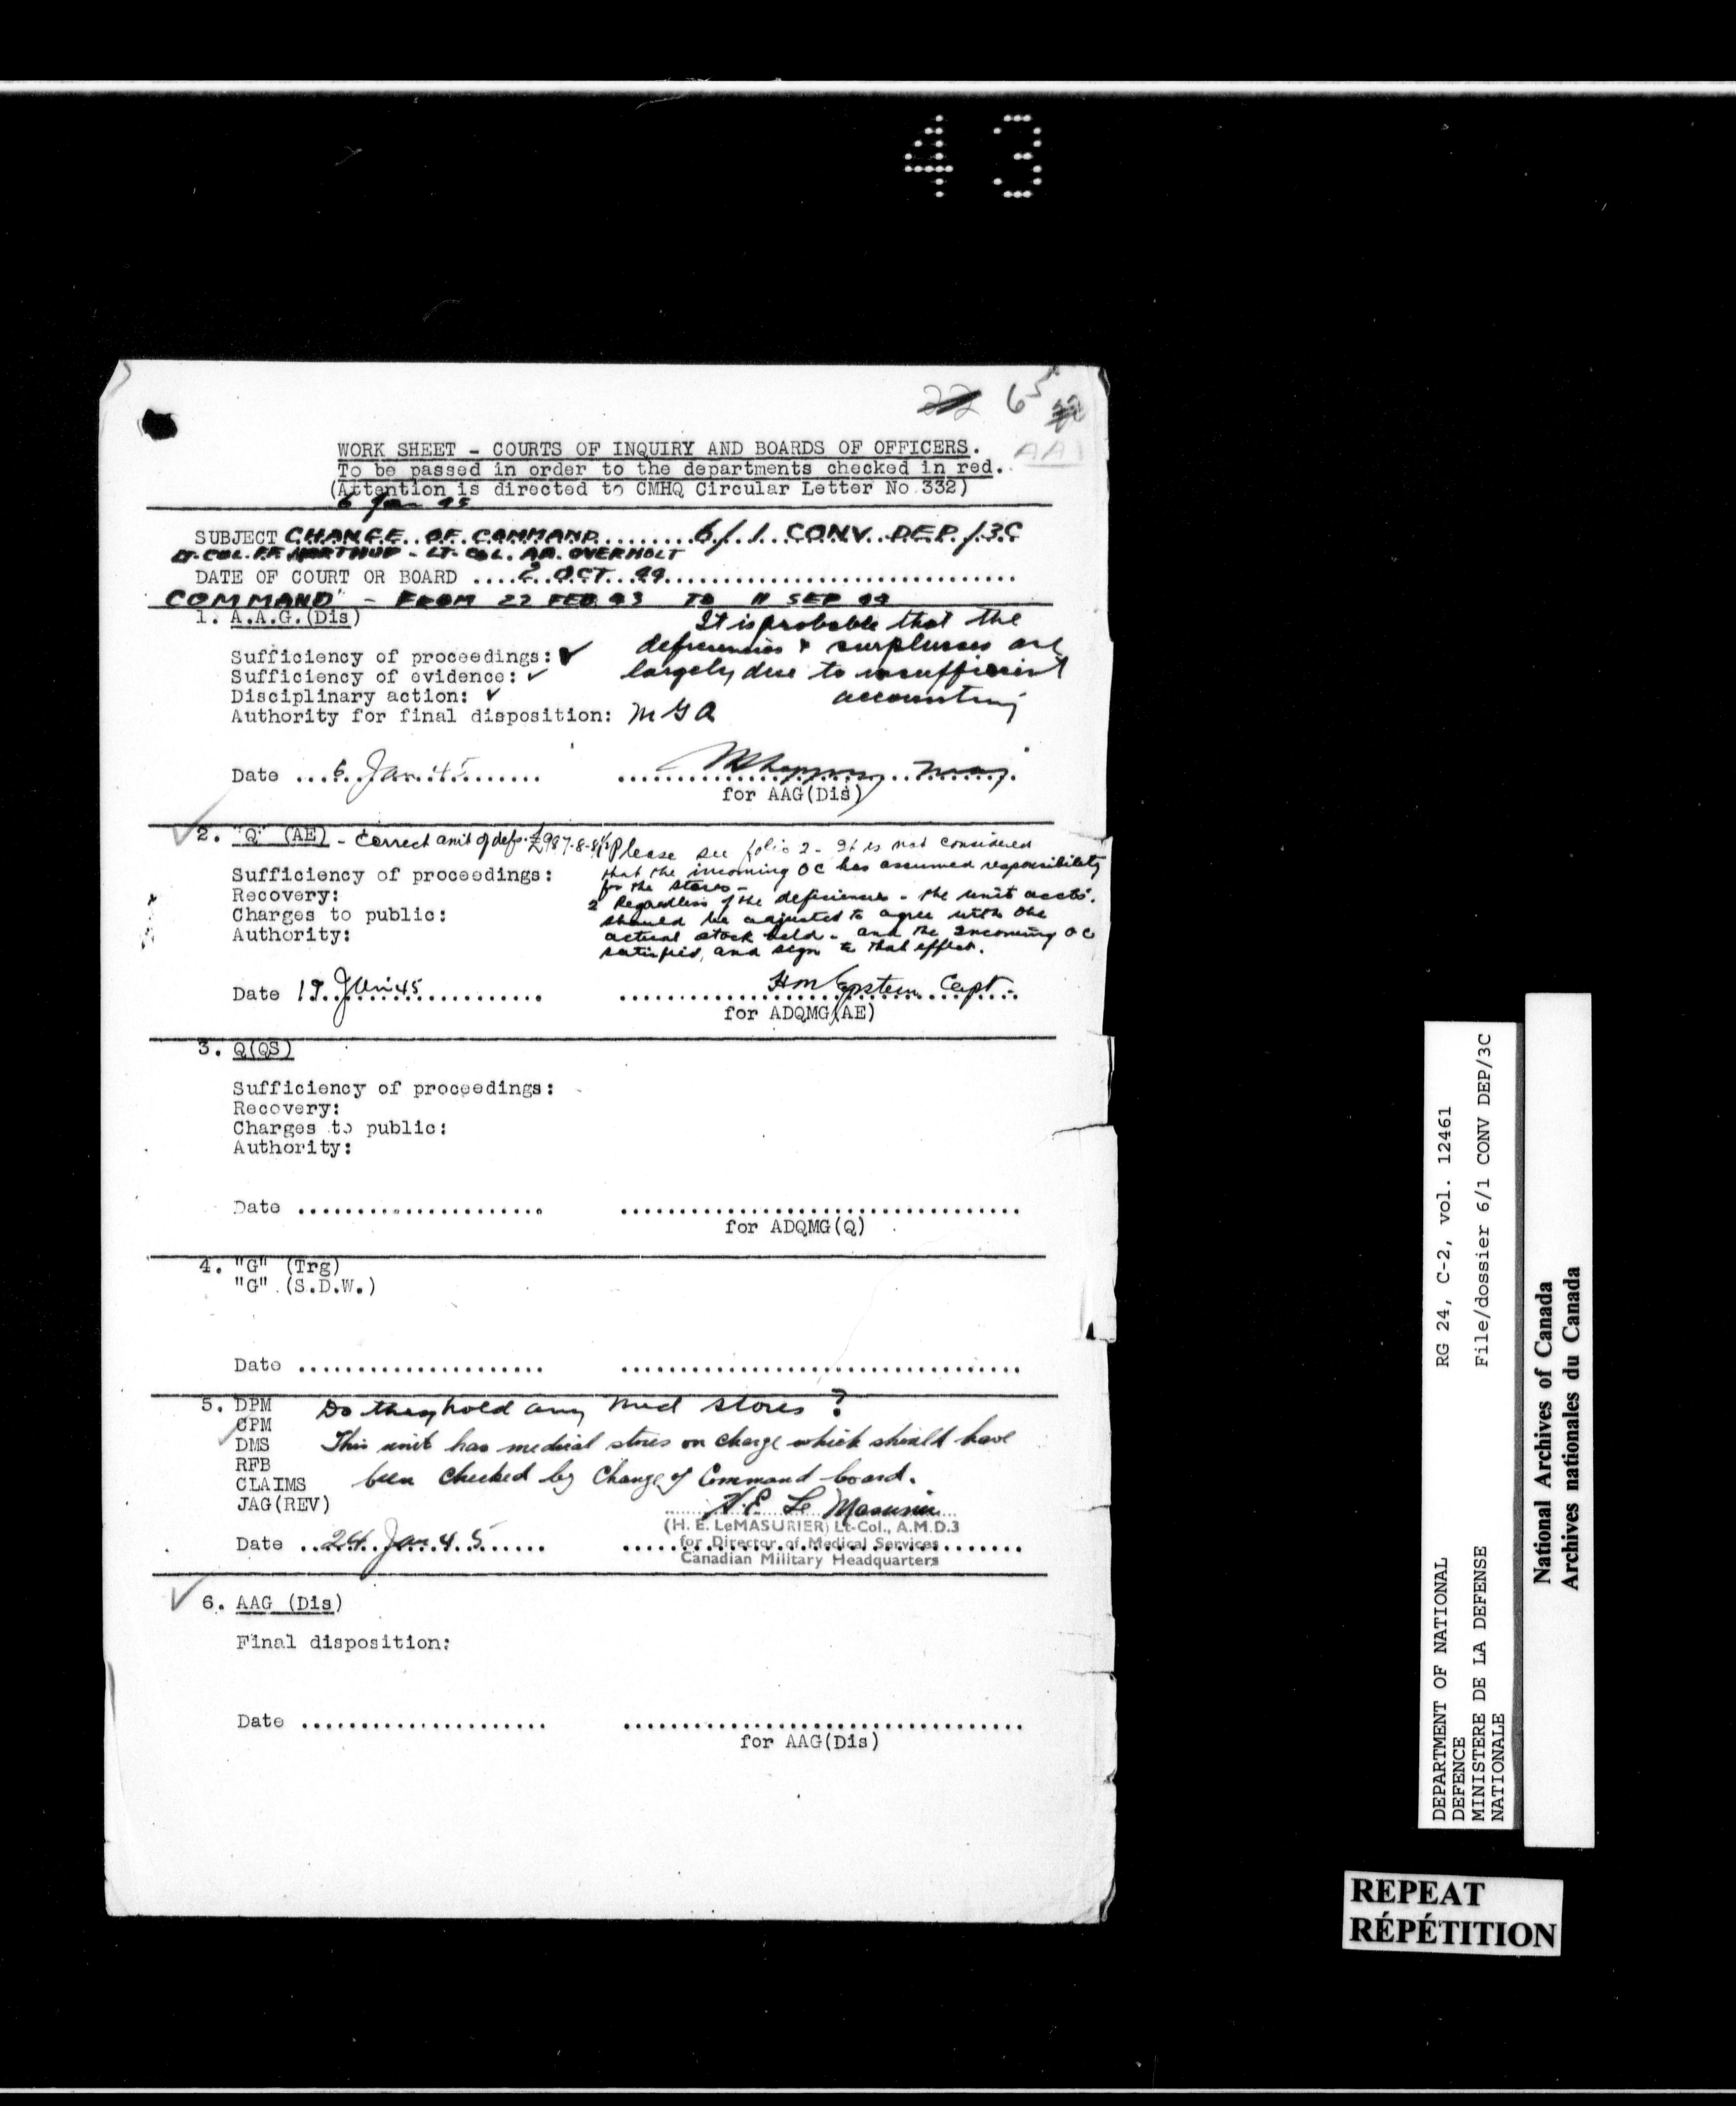 43
22 65
AA1
WORK SHEET - COURTS OF INQUIRY AND BOARDS OF OFFICERS.
To be passed in order to the departments checked in red.
(Attention is directed to CMHQ Circular Letter No 332)
6 Jan 45
SUBJECT CHANGE OF COMMAND 6/1 CONV. DEP/3C
LT. COL. F.F. NORTHUP - LT. COL. A.A. OVERHOLT
DATE OF COURT OR BOARD ....2 OCT 44..............................
COMMAND" - FROM 22 FEB 43 TO 11 SEP 44
1. A.A.G.(Dis)
It is probable that the
deficiencies & surpluses are
largely due to insufficient
accounting
Sufficiency of proceedings: ✓
Sufficiency of evidence: ✓
Disciplinary action: ✓
Authority for final disposition: MGA
Date ...6 Jan 45......... Maj.
for AAG(Dis)
2. "Q" (AE) - Correct amt of defs. £987-8-8½
1 Please see folio 2 - It is not considered
that the incoming OC has assumed responsibility
for the stores -
2 Regardless of the deficiencies - the unit accts.
should be adjusted to agree with the
actual stock held - and the incoming OC
satisfied, and sign to that effect.
Sufficiency of proceedings:
Recovery:
Charges to public:
Authority:
Date 19 Jan 45 HM Epstein Capt.
for ADQMG(AE)
3. Q(QS)
Sufficiency of proceedings:
Recovery:
Charges to public:
Authority:
Date ..................... ..................................
for ADQMG(Q)
4. "G" (Trg)
"G" (S.D.W.)
Date ..................... ..................................
5. DPM Do they hold any Med stores?
CPM
DMS This unit has medical stores on charge which should have
RFB
CLAIMS been checked by Change of Command board.
JAG(REV) H.E. Le Masurier
(H. E. LeMASURIER) Lt-Col., A.M.D.3
Date ..24 Jan 45...... for Director of Medical Services
Canadian Military Headquarters
6. AAG (Dis)
Final disposition:
Date ..................... ..................................
for AAG(Dis)
DEPARTMENT OF NATIONAL
DEFENCE
MINISTERE DE LA DEFENSE
NATIONALE
RG 24, C-2, vol. 12461
File/dossier 6/1 CONV DEP/3C
National Archives of Canada
Archives nationales du Canada
REPEAT
RÉPÉTITION